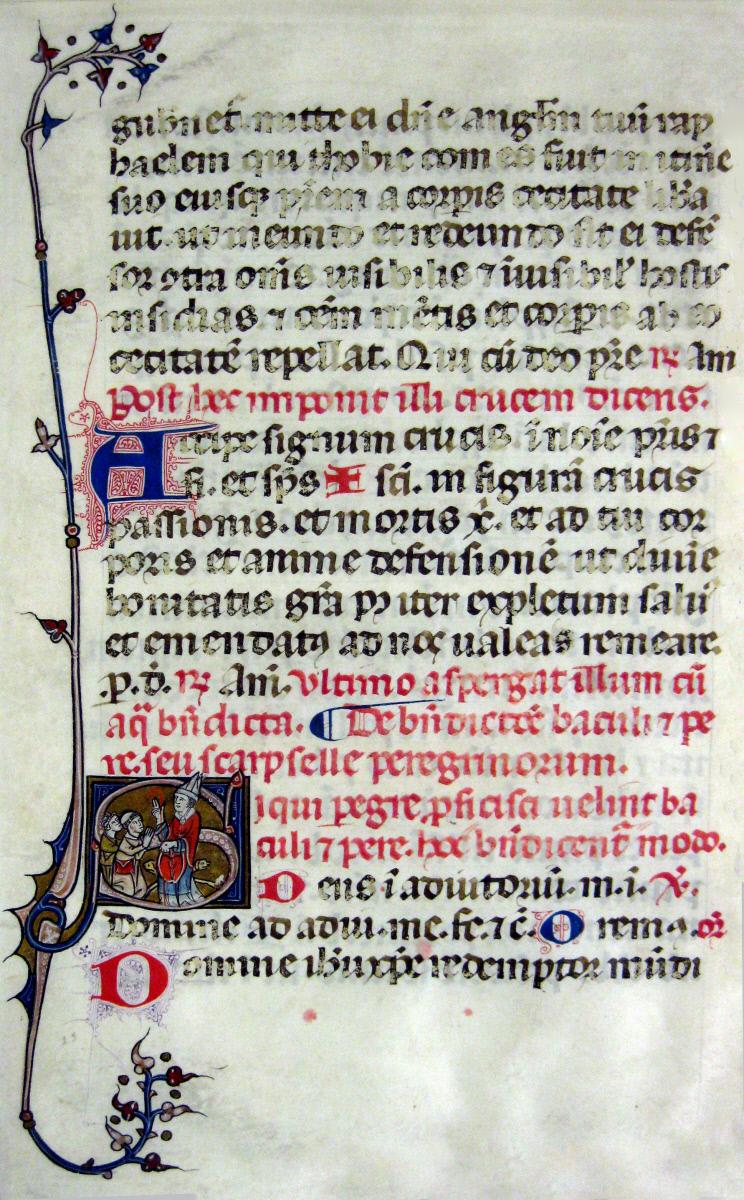 gubnet. mitte ei dne anglm tuū rap
haelem qui thobie com eō fiut in itiñe
suo eiusq; prem a corpis cecitate liba
uit. ut in eundo et redeundo sit ei defē
sor ɔtra om̄s uisibilis ⁊ īuisibil' hostis
insidias ⁊ cem mētis et corpis ab eo
cecitatē repellat. Qui cū deo pr̄e ℞ Am̄
Post hec imponit illi crucem dicens.
Accipe signum crucis. ī noīe pr̄is ⁊
fi. et sp̄s ✠ sci. in figurā crucis
passionis. et mortis x̄. et ad tiu cor
poris et anime defensionē ut diuīe
bonitatis gr̄a p iter expletum saluꝰ
et emendatꝰ ad nos ualeas remeare.
.p. d. ℞ Am̄. Ultimo aspergat illum cū
aq̄ bn̄dicta. ¶ De bn̄dictōe baculi ⁊ pe
re. seu scarpselle peregrinorum.
Siqui pegre pficisci uelint ba
culi ⁊ pere. hoc bn̄dicent̄ modo.
Deus ī adiutoriū. m. ī. ℣.
Domine ad adiu. me. fe. ⁊ c̄. Oremꝰ. or̄
Domine ihu xp̄e redemptor mūdi